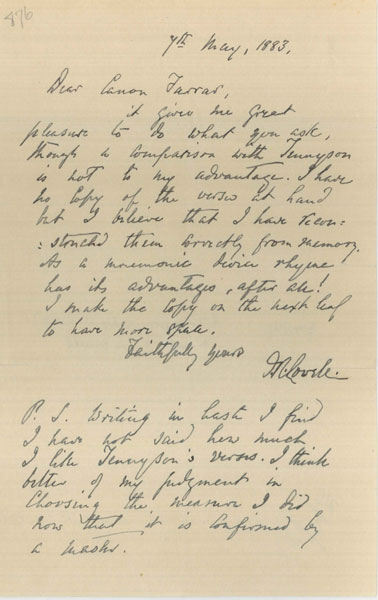 476
7th May, 1883.
Dear Canon Farrar,
it gives me great
pleasure to do what you ask,
though a comparison with Tennyson
is not to my advantage. I have
no copy of the verses at hand
but I believe that I have recon=
=structed them correctly from memory.
As a mnemonic device rhyme
has its advantages, after all!
I make the copy on the next leaf
to have more space.
Faithfully yours
J. R. Lowell.
P. S. Writing in haste I find
I have not said how much
I like Tennyson's verses. I think
better of my judgment in
choosing the measure I did
now that it is confirmed by
a master.